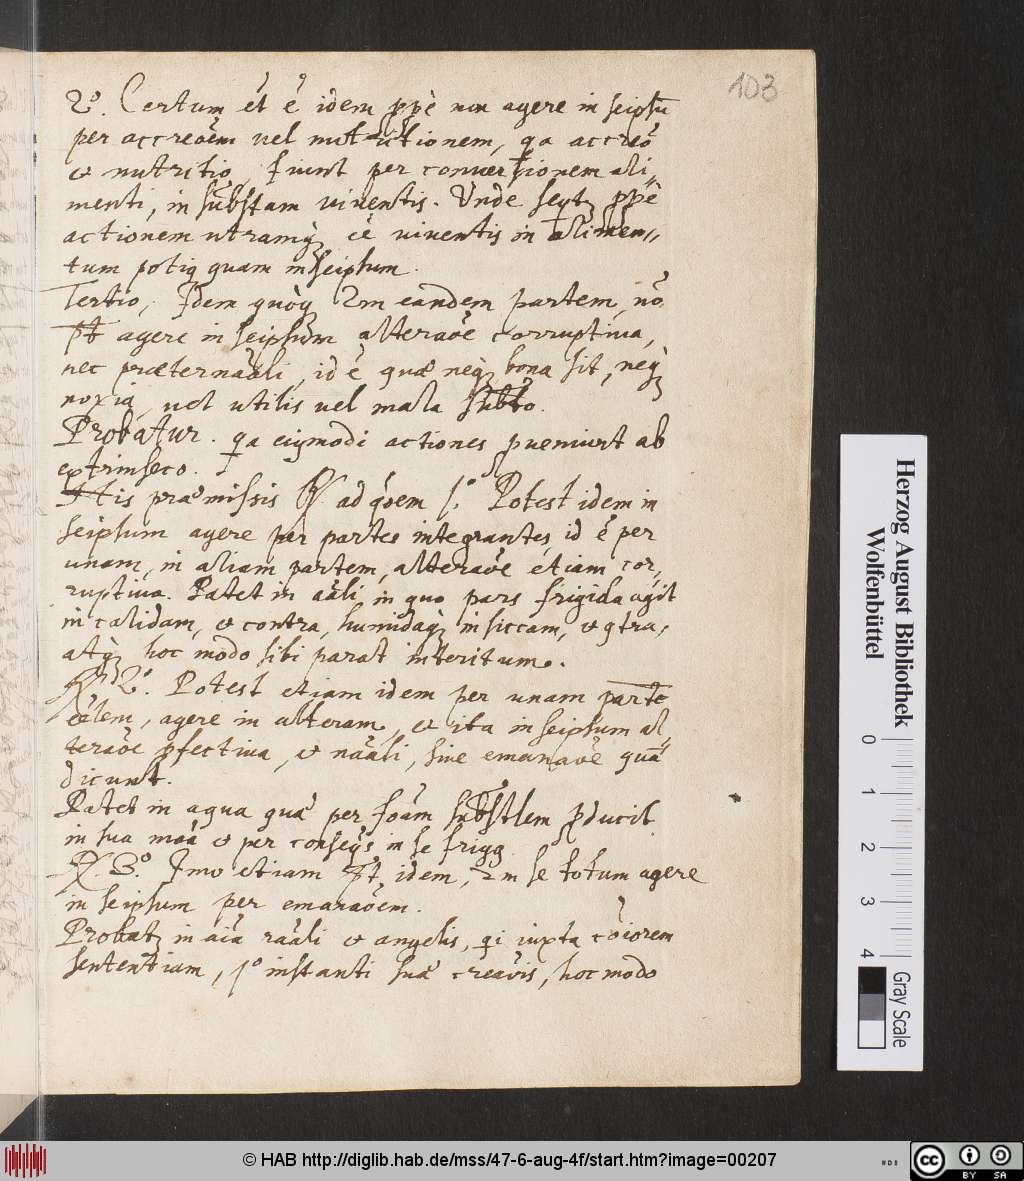 103
2º. Certum ét é idem ppè non agere in seipsū
per accreōēm vel nutritionem, qa accreō
et nutritio, fiunt per conversionem ali,
menti, in substam viventis. Unde seqt ppè
actionem utramq ēē viventis in alimen„
tum potiq quam in seipsum.
Tertio, Idem quòq 2m eandem partem, nō
pt agere in seipsum alteraōē corruptiva,
nec præternāāli, id é quæ neq bona sit, neq
noxia, vel utilis vel mala subto.
Probatur. qa eiqmodi actiones pveniunt ab
extrinseco.
His præmissis R. ad qōem 1º. Potest idem in
seipsum agere per partes integrantes, id é per
unam, in aliam partem, alteraōē etiam cor,
ruptiva. Patet in aāli in quo pars frigida agit
in calidam, et contra, humidaq in siccam, et qtra,
atq hoc modo sibi parat interitum.
R. 2º. Potest etiam idem per unam partē
eālem, agere in alteram, et ita in seipsum al„
teraōē pfectiva, et nāāli, sive emanaōē quā
dicunt.
Patet in aqua quæ per foām substlem pducit
in sua māā et per conseqs in se frigq
R. 3º. Imo etiam Pt idem, 2m se totum agere
in seipsum per emanaōēm.
Probatz in aīā rāāli et angelis, qi iuxta cōīorem
sententiam, 1º instanti suæ creaōis, hoc modo
Herzog August Bibliothek
Wolfenbüttel
0 1 2 3 4
Gray Scale
© HAB http://diglib.hab.de/mss/47-6-aug-4f/start.htm?image=00207
cc BY SA